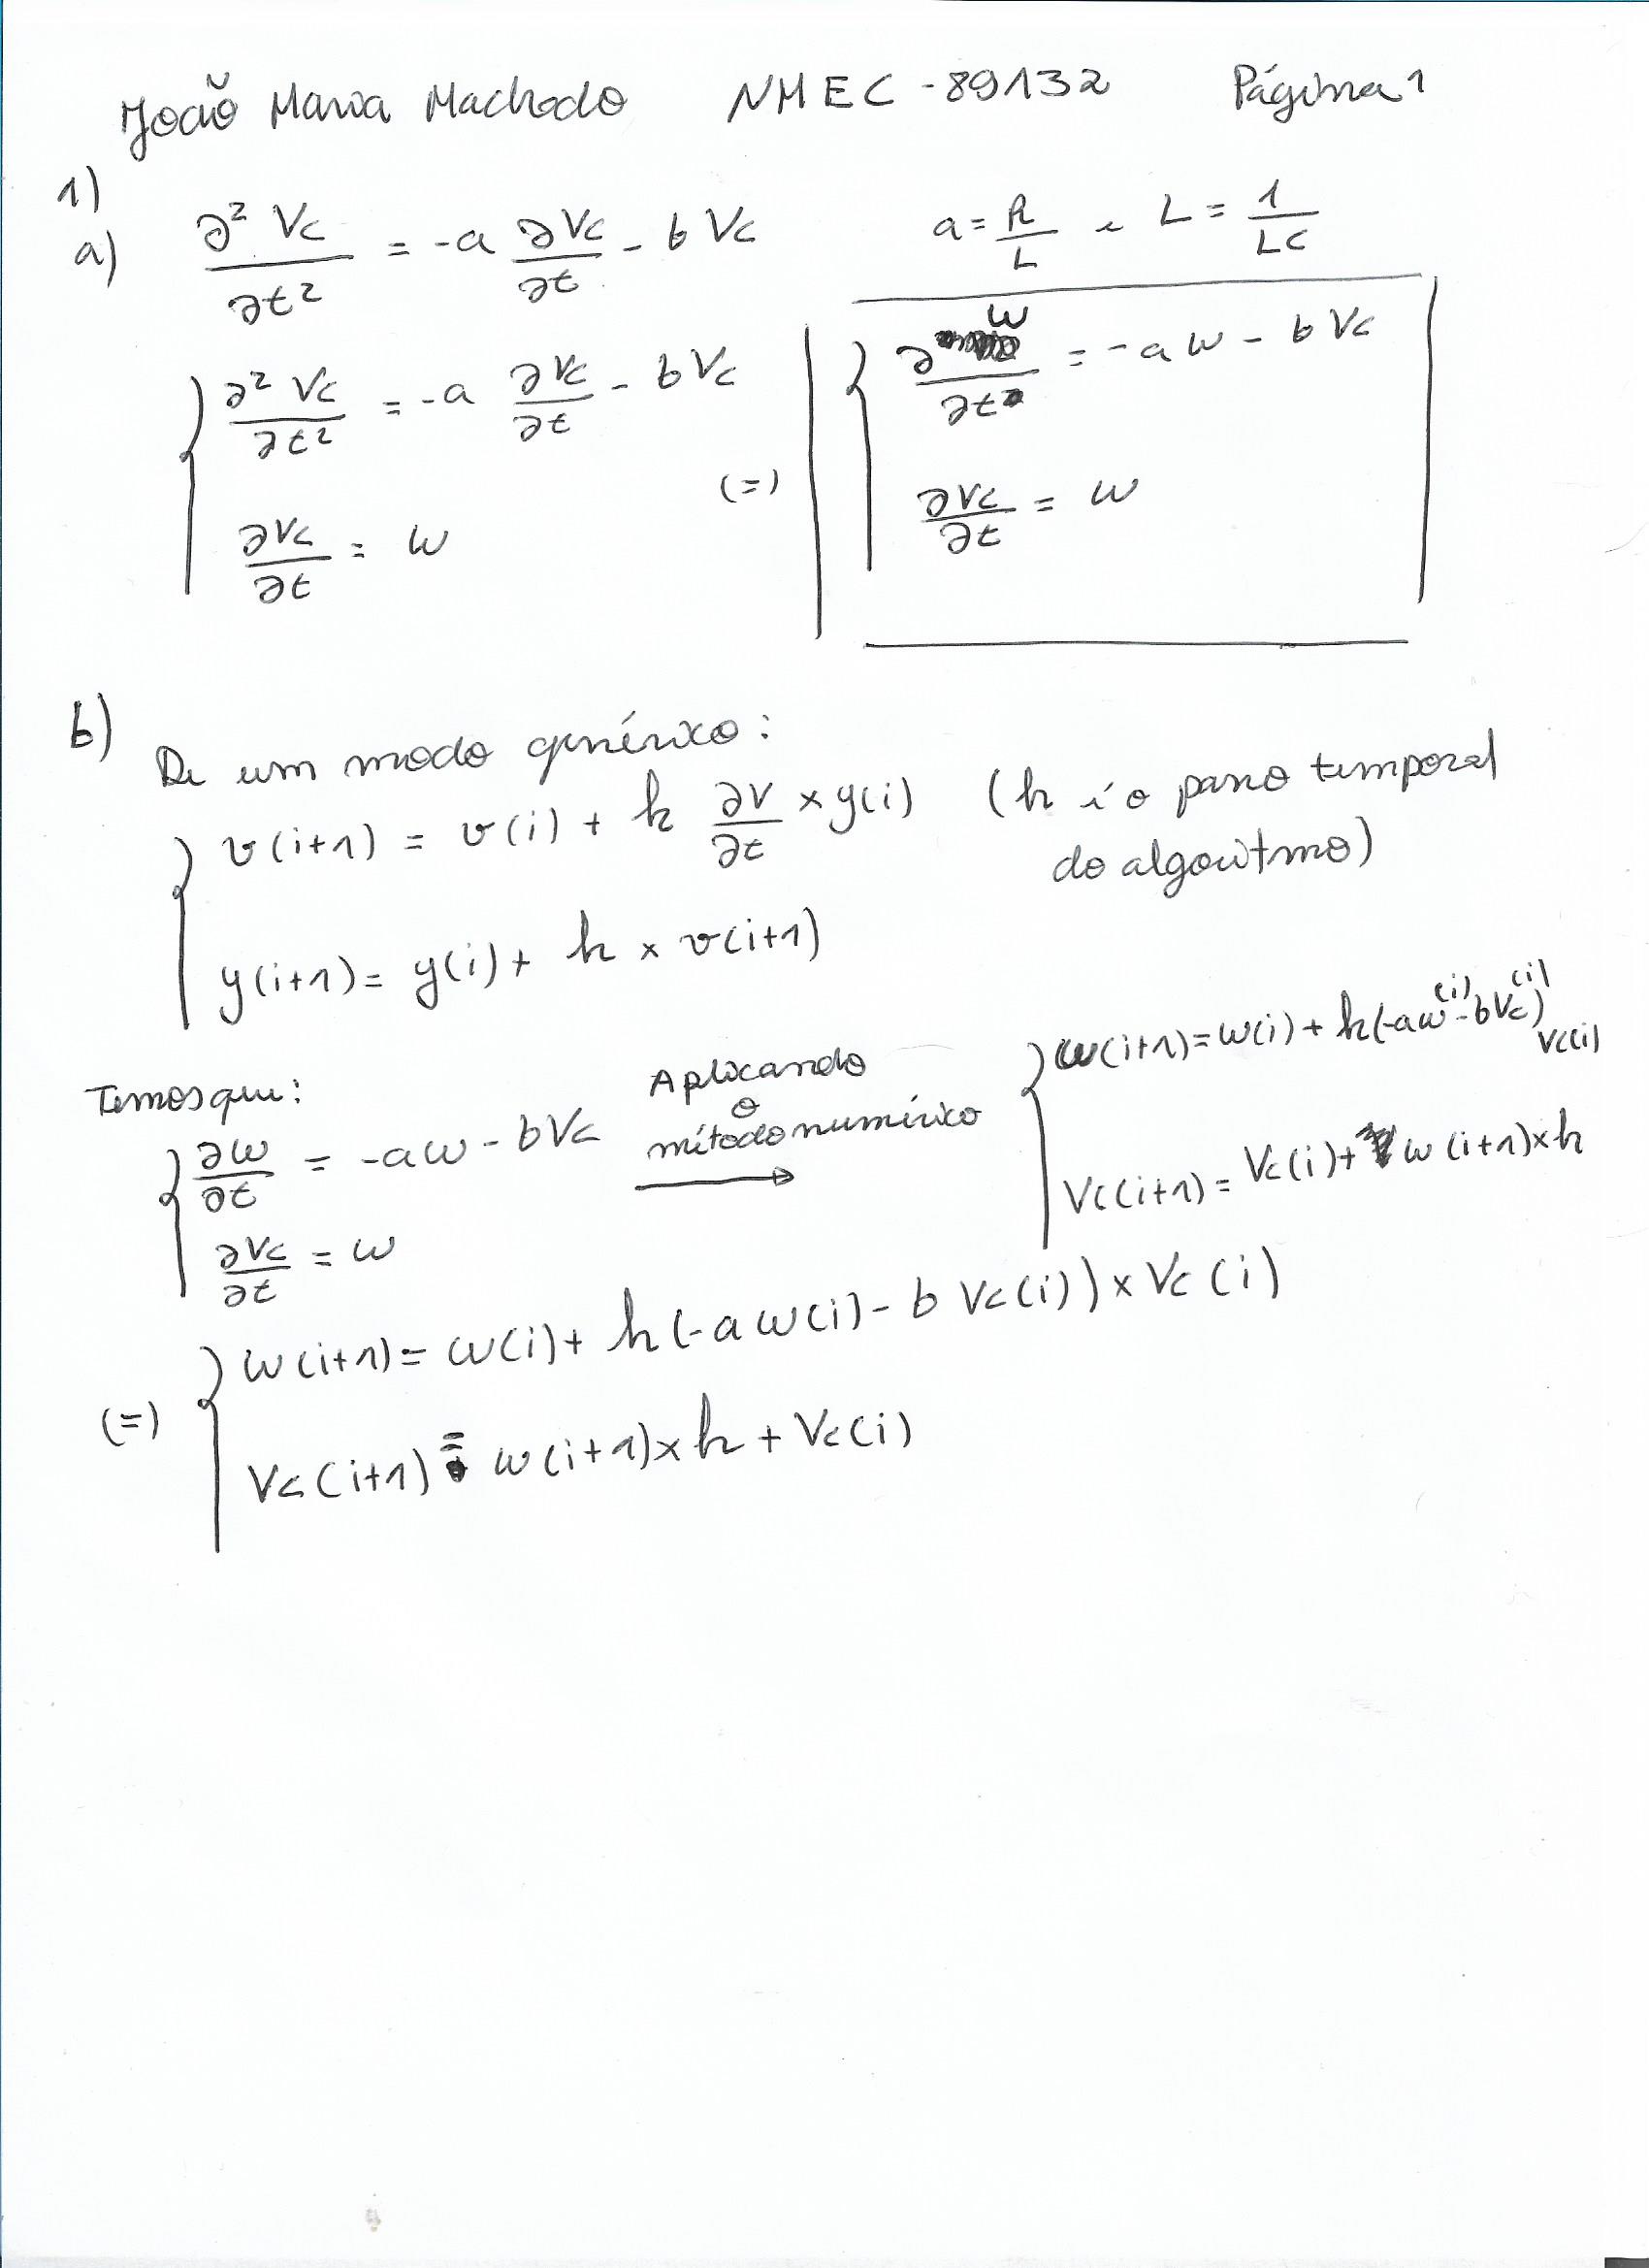 João Maria Machado NMEC - 89132 Página 1
1)
a) ∂² Vc / ∂t² = -a ∂Vc / ∂t - b Vc a = R / L e L = 1 / LC
{ ∂² Vc / ∂t² = -a ∂Vc / ∂t - b Vc
∂Vc / ∂t = w
(=) { ∂w / ∂t = -a w - b Vc
∂Vc / ∂t = w
b) De um modo genérico:
{ v(i+1) = v(i) + h ∂v / ∂t × y(i) (h é o passo temporal
do algoritmo)
y(i+1) = y(i) + h × v(i+1)
Temos que:
{ ∂w / ∂t = -aw - bVc
∂Vc / ∂t = w
Aplicando
o
método numérico
→
{ w(i+1) = w(i) + h(-aw(i) - bVc(i)) Vc(i)
Vc(i+1) = Vc(i) + w(i+1) × h
(=) { w(i+1) = w(i) + h(-a w(i) - b Vc(i)) × Vc(i)
Vc(i+1) = w(i+1) × h + Vc(i)